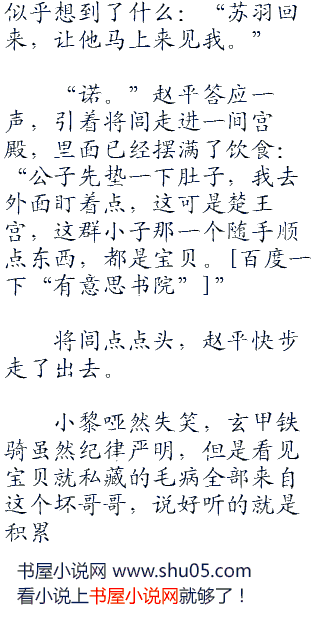 似乎想到了什么：“苏羽回
来，让他马上来见我。”
“诺。”赵平答应一
声，引着将闾走进一间宫
殿，里面已经摆满了饮食：
“公子先垫一下肚子，我去
外面盯着点，这可是楚王
宫，这群小子那一个随手顺
点东西，都是宝贝。[百度一
下“有意思书院”]”
将闾点点头，赵平快步
走了出去。
小黎哑然失笑，玄甲铁
骑虽然纪律严明，但是看见
宝贝就私藏的毛病全部来自
这个坏哥哥，说好听的就是
积累
书屋小说网 www.shu05.com
看小说上书屋小说网就够了！